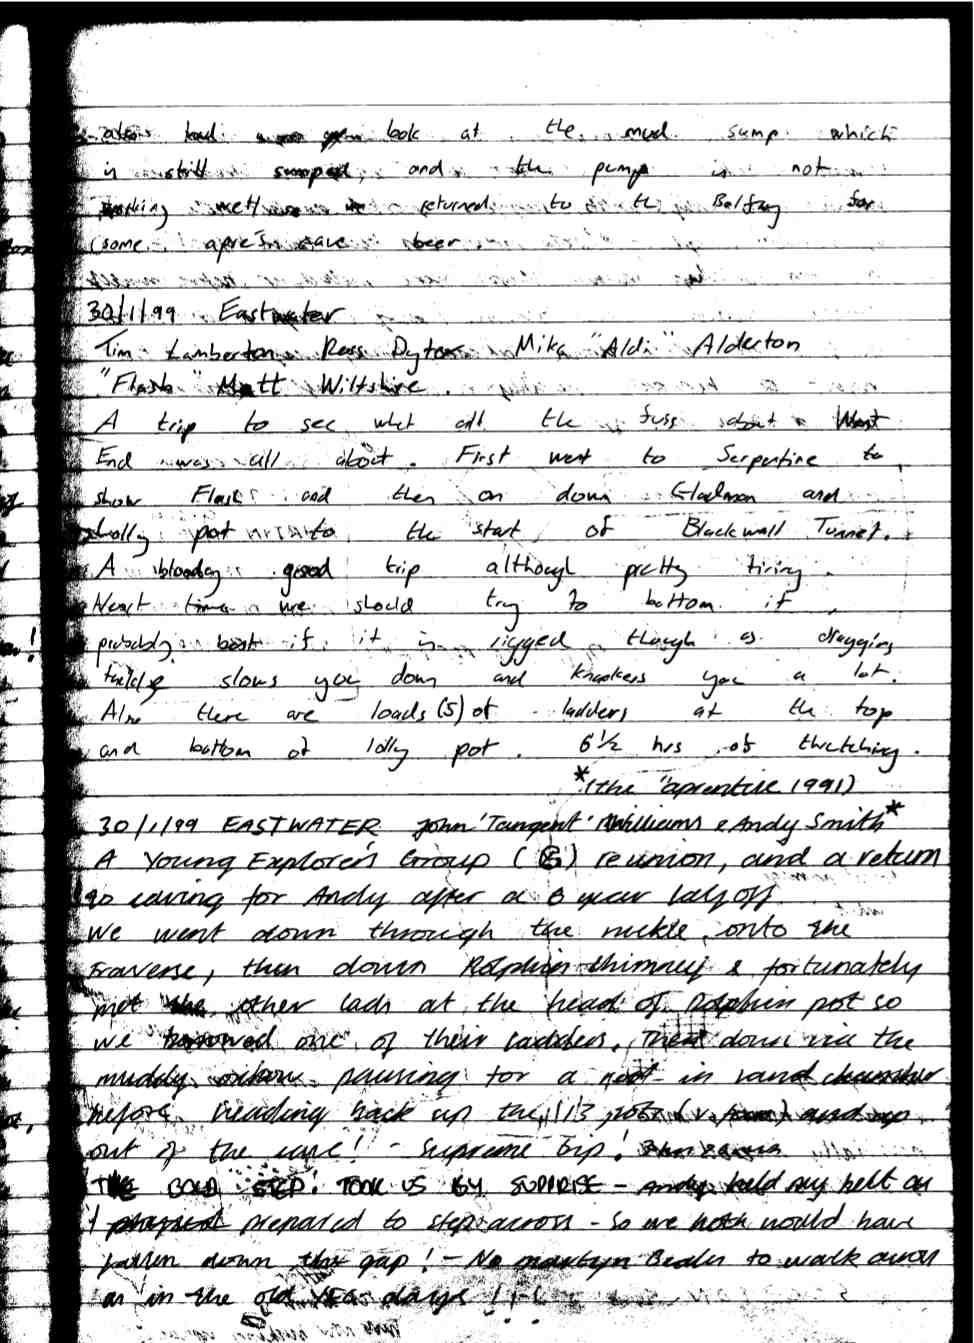 also had a look at the mud sump which
is still sumped, and the pump is not
working well returned to the Belfry for
some apres cave beer.
30/1/99 Eastwater
Tim Lamberton Ross Dyton Mike "Aldi" Alderton
"Flash" Matt Wiltshire.
A trip to see what all the fuss about West
End was all about. First went to Serpentine to
show Flash and then on down Gladmon and
Lolly pot to the start of Blackwall Tunnel.
A bloody good trip although pretty tiring.
Next time we should try to bottom it,
probably best if it is rigged though as dragging
tackle slows you down and knackers you a lot.
Also there are loads (5) of ladders at the top
and bottom of lolly pot. 6½ hrs of thrutching.
*(the "aprentice 1991)
30/1/99 EASTWATER John 'Tangent' Williams & Andy Smith*
A Young Explorers Group () reunion, and a return
to caving for Andy after a 8 year lay off
We went down through the ruckle, onto the
traverse, then down Dolphin chimney & fortunately
met the other lads at the head of Dolphin pot so
we borrowed one of their ladders. Then down via the
muddy oxbow pausing for a rest in sand chamber
before heading back up the 13 pots and up
out of the cave! - Supreme trip!
THE BOLD STEP! TOOK US BY SUPRISE - Andy held my belt as
I prepared to step across - So we both would have
fallen down the gap! - No martyn Beales to walk across
as in the old YEG days!!